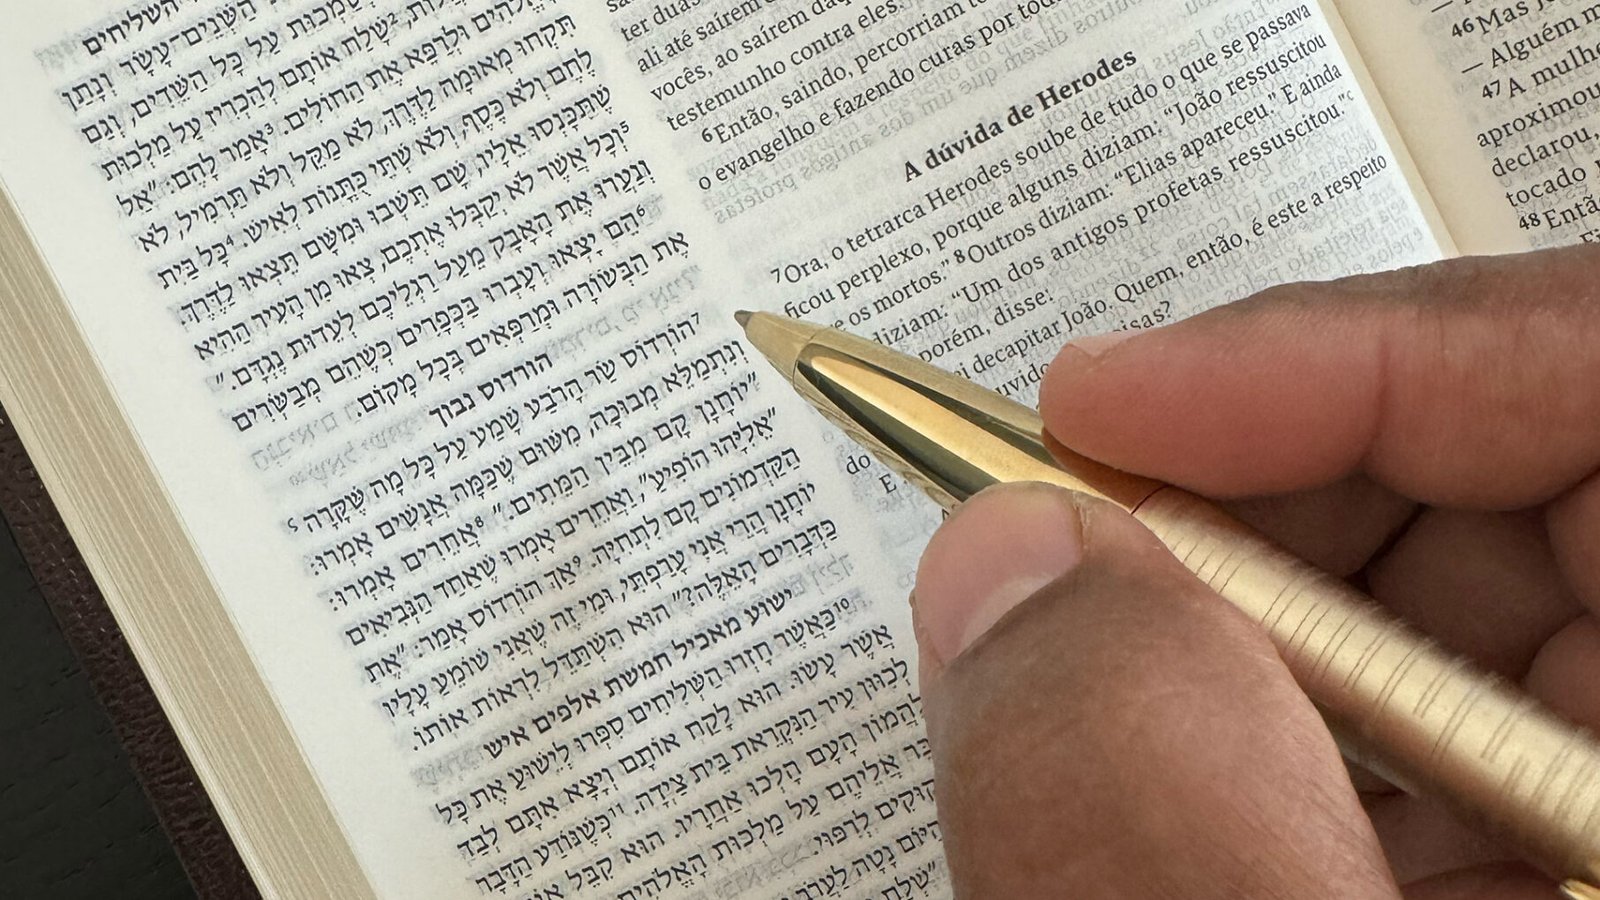 השליחים
הַשְּׁנֵים־עָשָׂר וְנָתַן
וְסַמְכוּת עַל כָּל הַשֵּׁדִים, וְגַם
²שָׁלַח אוֹתָם לְהַכְרִיז עַל מַלְכוּת
הָאֱלֹהִים וּלְרַפֵּא אֶת הַחוֹלִים. ³אָמַר לָהֶם: "אַל
תִּקְחוּ מְאוּמָה לַדֶּרֶךְ, לֹא מַקֵּל וְלֹא תַּרְמִיל, לֹא
לֶחֶם וְלֹא כֶּסֶף, וְלֹא שְׁתֵּי כֻּתָּנוֹת לְאִישׁ. ⁴כָּל בַּיִת
שֶׁתִּכָּנְסוּ אֵלָיו, שָׁם תֵּשְׁבוּ וּמִשָּׁם תֵּצְאוּ לַדֶּרֶךְ.
⁵וְכָל אֲשֶׁר לֹא יְקַבְּלוּ אֶתְכֶם, צְאוּ מִן הָעִיר הַהִיא
וְנַעֲרוּ אֶת הָאָבָק מֵעַל רַגְלֵיכֶם לְעֵדוּת נֶגְדָּם."
⁶הֵם יָצְאוּ וְעָבְרוּ בַּכְּפָרִים כְּשֶׁהֵם מְבַשְּׂרִים
אֶת הַבְּשׂוֹרָה וּמְרַפְּאִים בְּכָל מָקוֹם.
הורדוס נבוך
⁷הוֹרְדוֹס שַׂר הָרֹבַע שָׁמַע עַל כָּל מָה שֶּׁקָּרָה
וְנִתְמַלֵּא מְבוּכָה, מִשּׁוּם שֶׁכַּמָּה אֲנָשִׁים אָמְרוּ:
"יוֹחָנָן קָם מִבֵּין הַמֵּתִים." ⁸אֲחֵרִים אָמְרוּ:
"אֵלִיָּהוּ הוֹפִיעַ", וַאֲחֵרִים אָמְרוּ שֶׁאֶחָד הַנְּבִיאִים
הַקַּדְמוֹנִים קָם לִתְחִיָּה. ⁹אַךְ הוֹרְדוֹס אָמַר: "אֶת
יוֹחָנָן הֲרֵי אֲנִי עָרַפְתִּי, וּמִי זֶה שֶׁאֲנִי שׁוֹמֵעַ עָלָיו
כַּדְּבָרִים הָאֵלֶּה?" הוּא הִשְׁתַּדֵּל לִרְאוֹת אוֹתוֹ.
ישוע מאכיל חמשת אלפים איש
¹⁰כַּאֲשֶׁר חָזְרוּ הַשְּׁלִיחִים סִפְּרוּ לְיֵשׁוּעַ אֶת כָּל
אֲשֶׁר עָשׂוּ. הוּא לָקַח אוֹתָם וְיָצָא אִתָּם לְבַד
לְכִוּוּן עִיר הַנִּקְרֵאת בֵּית צַיְדָה. ¹¹כְּשֶׁנּוֹדַע הַדָּבָר
לַהֲמוֹן הָעָם הָלְכוּ אַחֲרָיו. הוּא קִבֵּל
אֲלֵיהֶם עַל מַלְכוּת הָאֱלֹהִים
לְרִפּוּי.
הַיּוֹם נָטָה לַעֲרֹב
"שְׁלַח
ter duas
ali até saírem d
vocês, ao saírem daq
testemunho contra eles.
⁶Então, saindo, percorriam to
o evangelho e fazendo curas por tod
A dúvida de Herodes
⁷Ora, o tetrarca Herodes soube de tudo o que se passava
ficou perplexo, porque alguns diziam: “João ressuscitou
e os mortos.” ⁸Outros diziam: “Elias apareceu.” E ainda
diziam: “Um dos antigos profetas ressuscitou.”ᶜ
porém, disse:
i decapitar João. Quem, então, é este a respeito
oisas?
uvido
do
E
46 Mas J
— Alguém m
47 A mulhe
aproximou
declarou,
tocado J
48 Entã